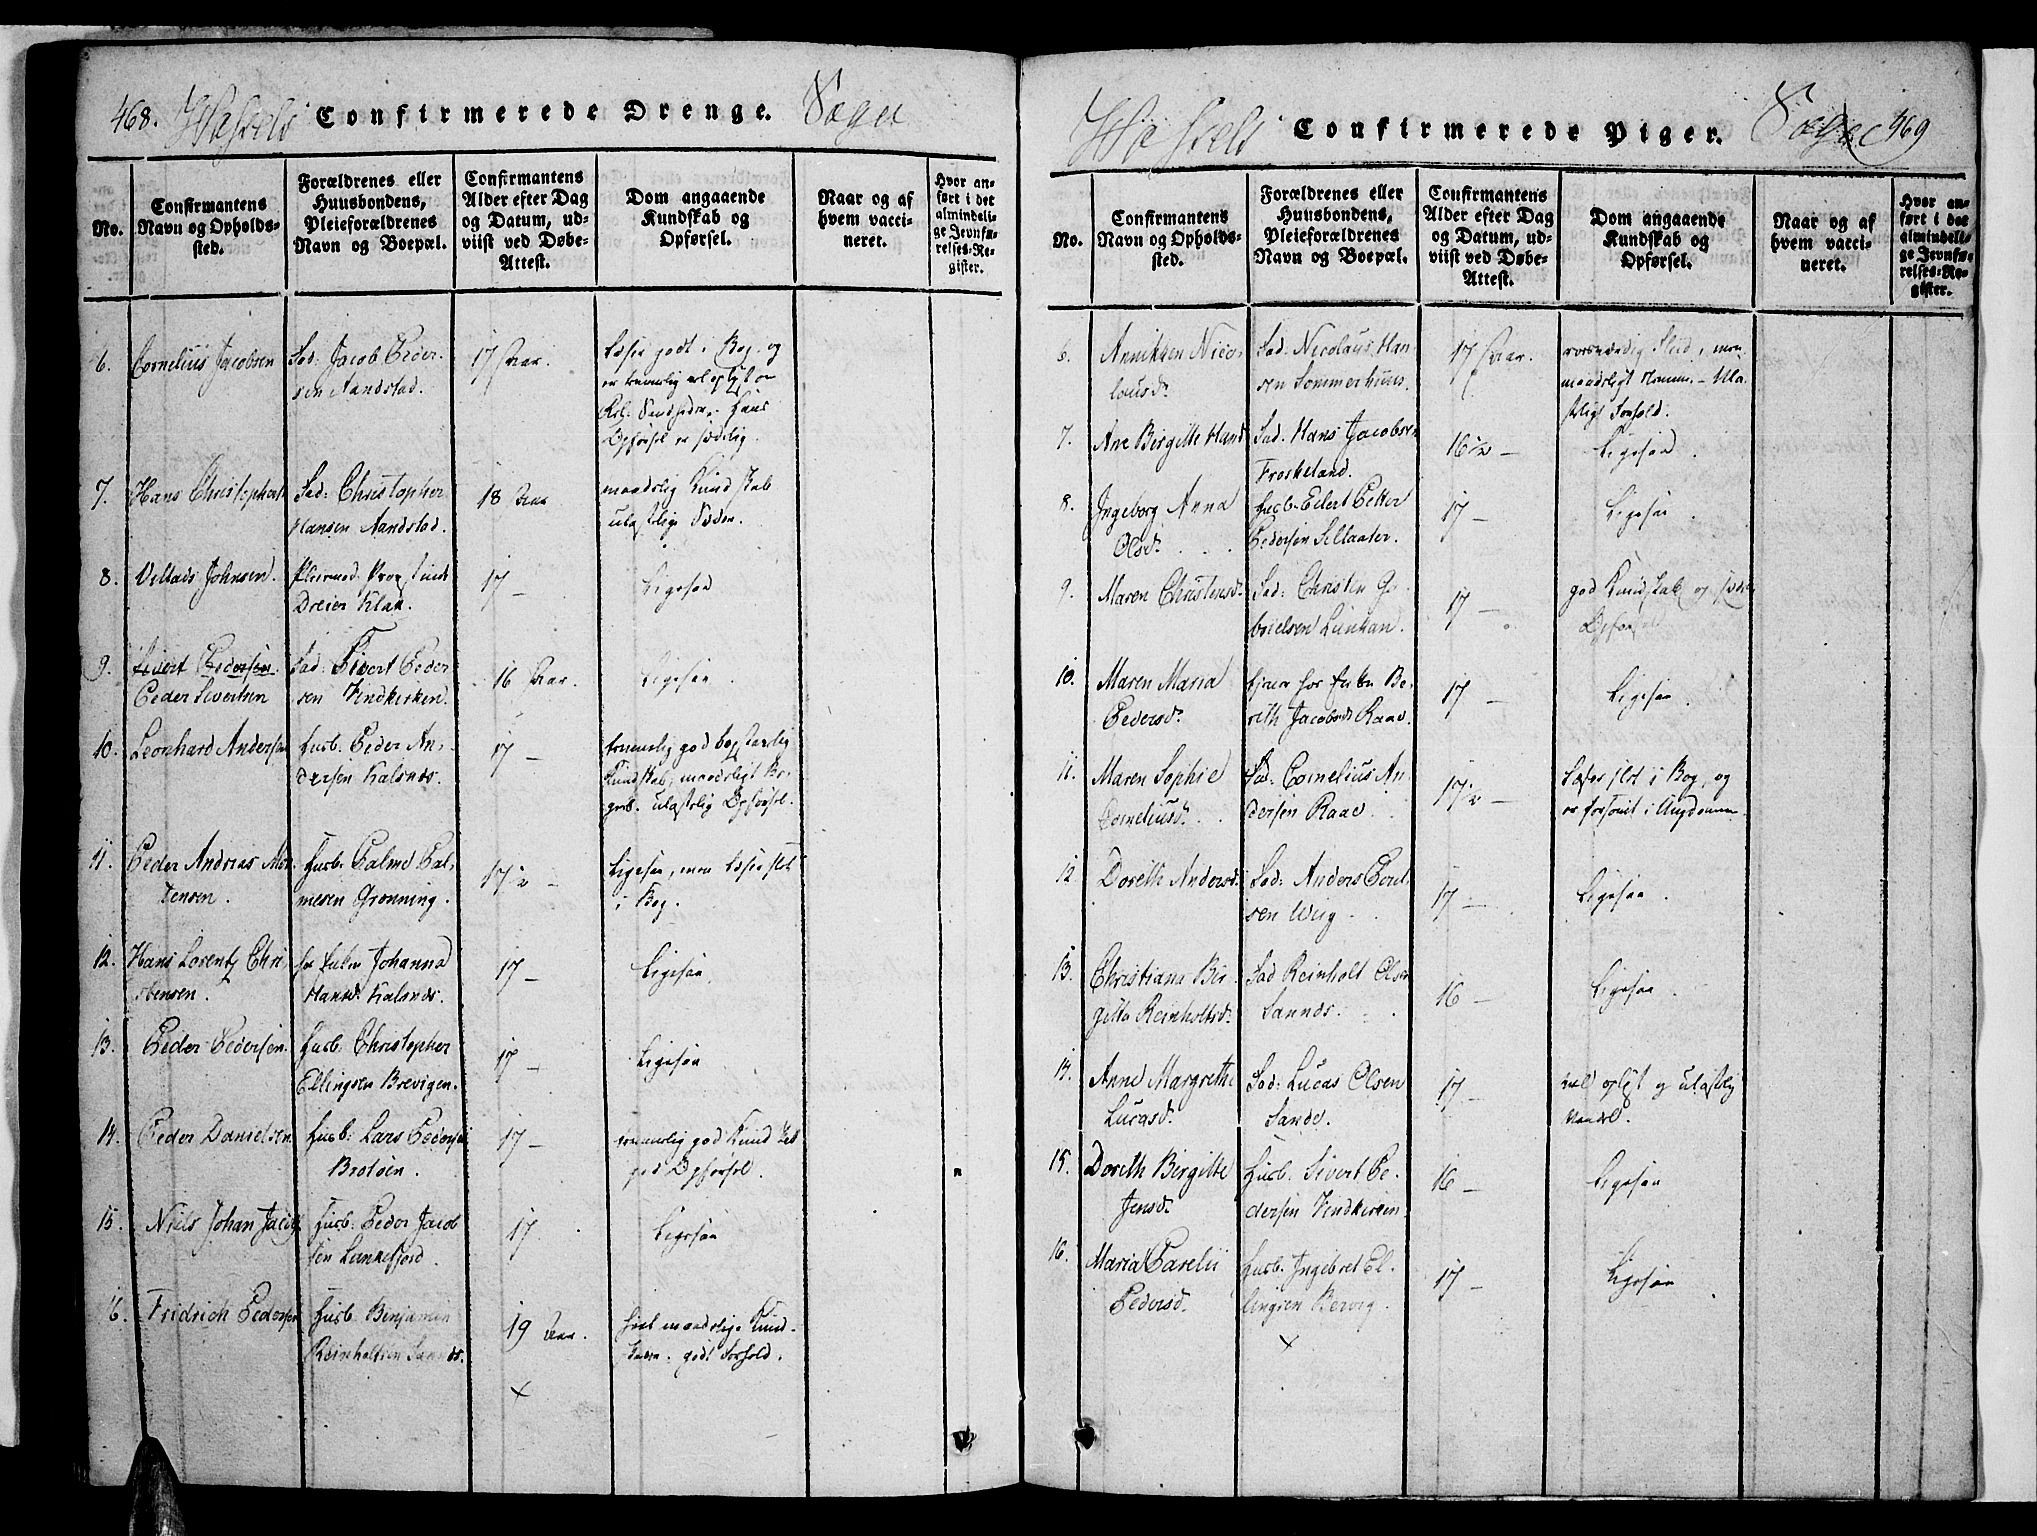 468. Hassels Confirmerede Drenge. Sogn
No.
Confirmantens
Navn og Opholds-
sted.
Forældrenes eller
Huusbondens,
Pleieforældrenes
Navn og Boepæl.
Confirmantens
Alder efter Dag
og Datum, ud-
viist ved Døbe-
Attest.
Dom angaaende
Kundskab og
Opførsel.
Naar og af
hvem vacci-
neret.
Hvor an-
ført i det
almindeli-
ge Jevnfø-
relses-Re-
gister.
6. Cornelius Jacobsen
Fad: Jacob Peder-
sen Aandstad.
17 Aar.
Læser godt i Bog, og
er temmelig vel oplyst
Opførsel er sædelig.
7. Hans Christophers
Fad: Christopher
Hansen Aandstad.
18 Aar
maadelig Kundskab
ulastelige Sæder.
8. Vellads Johnsen.
Pleiemod: Provstinde
Dreier Klax.
17 —
Ligesaa
9. Sivert Pedersen
Peder Sivertsen
Fad: Sivert Peder-
sen Vindkirken.
16 Aar.
Ligesaa.
10. Leonhard Andersen
Husb. Peder An-
dersen Kalsnæs.
17 —
temmelig god bogstavelig
Kundskab, maadeligt Be-
greb. ulastelig Opførsel.
11. Peder Andreas Mor-
tensen.
Husb. Palme Pal-
mesen Grønning.
17½ —
Ligesaa, men læser slet
i Bog.
12. Hans Lorentz Chri-
stensen.
Johanna
Hansd. Kalsnæs.
17 —
Ligesaa.
13. Peder Pedersen.
Husb. Christopher
Ellingsen Brevigen.
17 —
Ligesaa
14. Peder Danielsen
Husb: Lars Pedersen
Brotøen.
17 —
temmelig god Kundskab
god Opførsel.
15. Niels Johan Jacobs.
Husb: Peder Jacob-
sen Lunkefjord.
17.
Ligesaa
16. Fridrich Pedersen
Husb Benjamin
Reinholtsen Sannæs.
19 Aar.
heel maadelige Kund-
skaber. godt Forhold.
×
Hassels Confirmerede Piger. Sogn 469
No.
Confirmantens
Navn og Opholds-
sted.
Forældrenes eller
Huusbondens,
Pleieforældrenes
Navn og Boepæl.
Confirmantens
Alder efter Dag
og Datum, ud-
viist ved Døbe-
Attest.
Dom angaaende
Kundskab og
Opførsel.
Naar og af
hvem vacci-
neret.
Hvor an-
ført i det
almindeli-
ge Jevnfø-
relses-Re-
gister.
6. Anniken Nico-
lausd.
Fad: Nicolaus Han-
sen Sommerhuus.
17 Aar.
roesværdig Flid, men
maadeligt Nemme. — Ula-
steligt Forhold.
7. Ane Birgitte Hansd
Fad: Hans Jacobsen
Froskeland.
16½ —
Ligesaa.
8. Ingeborg Anna
Olsd.
Husb. Eilert Petter
Pedersen Slttaater.
17 —
Ligesaa.
9. Maren Christensd.
Fad: Christen Ga-
brielsen Lunkan.
17 —
god Kundskab og
Opførsel
10. Maren Maria
Pedersd.
tjener hos Enken Be-
rith Jacobsd. Raae.
17 —
Ligesaa.
11. Maren Sophie
Corneliusd.
Fad: Cornelius An-
dersen Raae.
17½ —
Læser slet i Bog, og
er forsømt i Ungdommen.
12 Dorith Andersd.
Fad: Anders
sen Weig.
17 —
Ligesaa.
13. Christiana Bir-
gitta Reinholtsd.
Fad Reinholt Olsen
Sannæs.
16 —
Ligesaa.
14. Anne Margrethe
Lucasd.
Fad: Lucas Olsen
Sande.
17 —
vel oplyst og ulastelig
Vandel.
15. Dorith Birgitte
Jensd.
Husb. Sivert Pe-
dersen Vindkirken.
16 —
Ligesaa
16. Maria Parelii
Pedersd.
Husb. Ingebret El-
lingsen Bervig.
17 —
Ligesaa
×